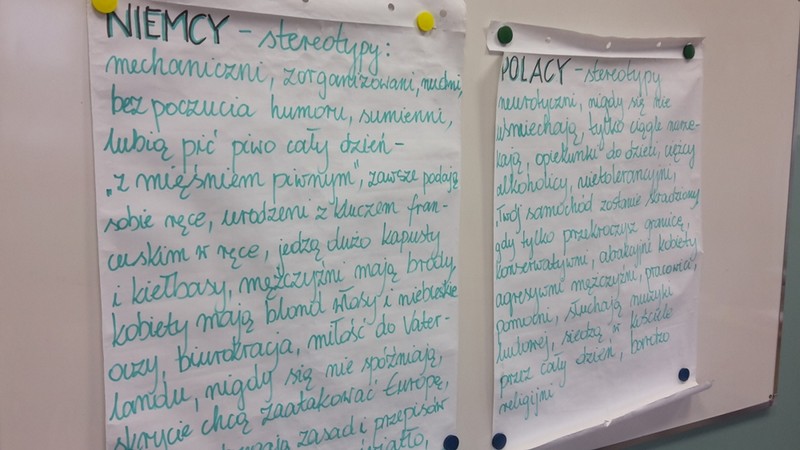 NIEMCY - stereotypy:
mechaniczni, zorganizowani, nudni,
bez poczucia humoru, sumienni,
lubią pić piwo cały dzień -
"z mięśniem piwnym", zawsze podają
sobie ręce, urodzeni z kluczem fran-
cuskim w ręce, jedzą dużo kapusty
i kiełbasy, mężczyźni mają brody,
kobiety mają blond włosy i niebieskie
oczy, biurokracja, miłość do Vater-
landu, nigdy się nie spóźniają,
skrycie chcą zaatakować Europę,
zasad i przepisów
POLACY - stereotypy
neurotyczni, nigdy się nie
uśmiechają, tylko ciągle narze-
kają, "opiekunki" do dzieci, ciężcy
alkoholicy, nietolerancyjni,
"Twój samochód zostanie skradziony
gdy tylko przekroczysz granicę,
konserwatywni, atrakcyjne kobiety
agresywni mężczyźni, pracowici,
pomocni, słuchają muzyki
ludowej, siedzą w kościele
przez cały dzień, bardzo
religijni